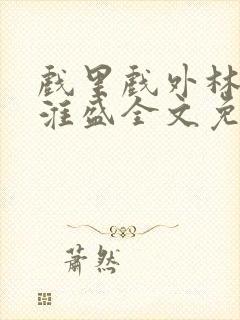 戏里戏外林
淮盛全文免
萧然